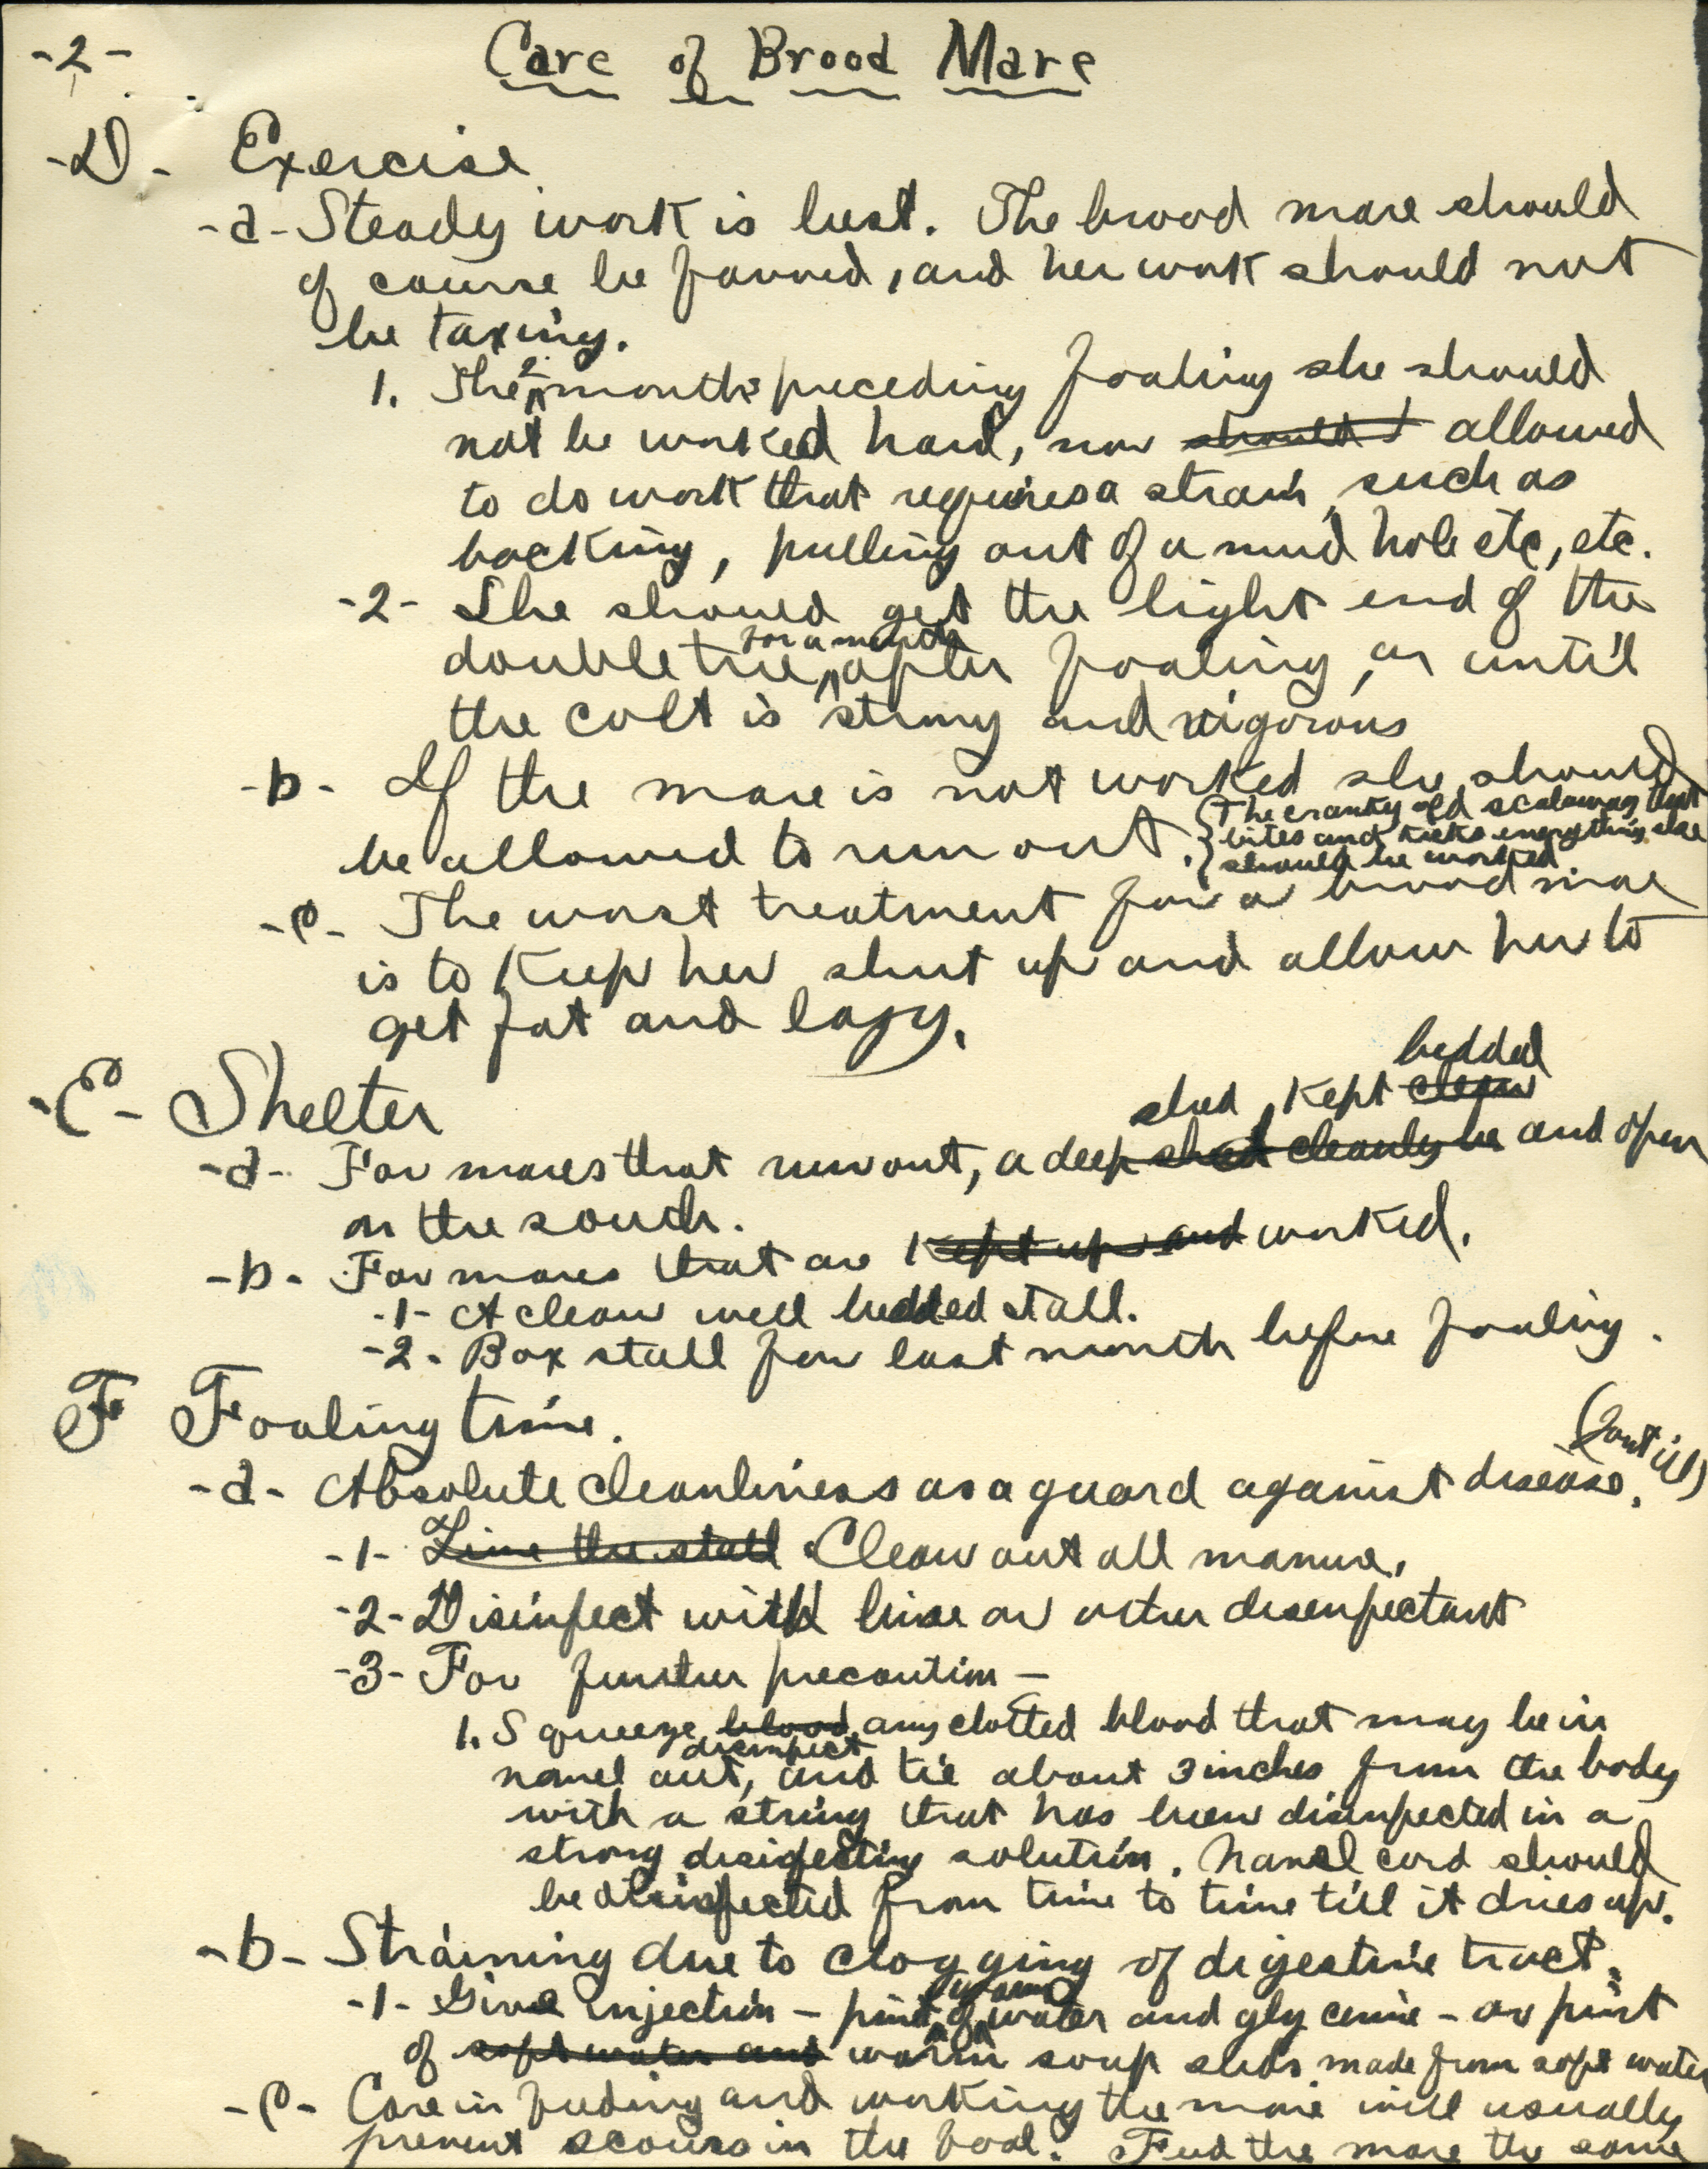 -2- Care of Brood Mare
-D- Exercise
-a- Steady work is best. The brood mare should
of course be favored, and her work should not
be taxing.
1. The 2 months preceding foaling she should
not be worked hard, nor should allowed
to do work that requires a strain, such as
backing, pulling out of a mud hole etc, etc.
-2- She should get the light end of the
for a month
doubletree, after foaling, or until
the colt is strong and vigorous
-b- If the mare is not worked she should
be allowed to run out. {The cranky old scalawag that
bites and kicks everything else
should be worked.
-c- The worst treatment for a brood mare
is to keep her shut up and allow her to
get fat and lazy.
bedded
-E- Shelter
shed, kept clean
-a- For mares that run out, a deep shed cleanly be and open
on the south.
-b- For mares that are kept up and worked.
-1- A clean well bedded stall.
-2- Box stall for last month before foaling.
F Foaling time.
-a- Absolute cleanliness as a guard against disease. (Joint ill)
-1- Lime the stall Clean out all manure.
-2- Disinfect with lime or other disenfectant
-3- For further precaution —
1. Squeeze blood any clotted blood that may be in
disinfect
navel out, and tie about 3 inches from the body
with a string that has been disinfected in a
strong disinfecting solution. Navel cord should
be disinfected from time to time till it dries up.
-b- Straining due to clogging of digestive tract.
warm
-1- Give injection - pint of water and glycerine - or pint
of soft water and warm soap suds made from soft water
-c- Care in feeding and working the mare will usually
prevent scours in the foal. Feed the mare the same